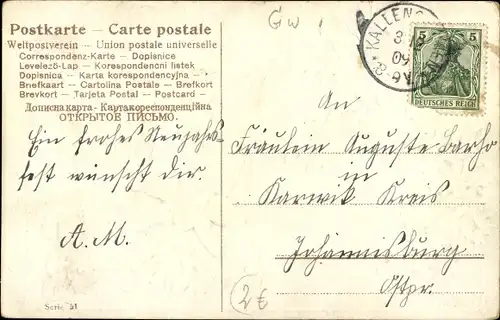 Postkarte — Carte postale
Weltpostverein — Union postale universelle
Correspondenz-Karte — Dopisnice
Levelező-Lap — Korespondencni listek
Dopisnica — Karta korespondencyjna —
Briefkaart — Cartolina Postale — Brefkort
Brevkort — Tarjeta Postal — Postcard —
Дописна карта - Картакореспонденційна
ОТКРЫТОЕ ПИСЬМО.
Ein frohes Neujahrs-
fest wünscht dir.
A. M.
Serie 51
G W
KALLEN
09
5 5
DEUTSCHES REICH
An
Fräulein Auguste Barho
in
Karwik Kreis
Johannisburg
Ostpr.
2 €